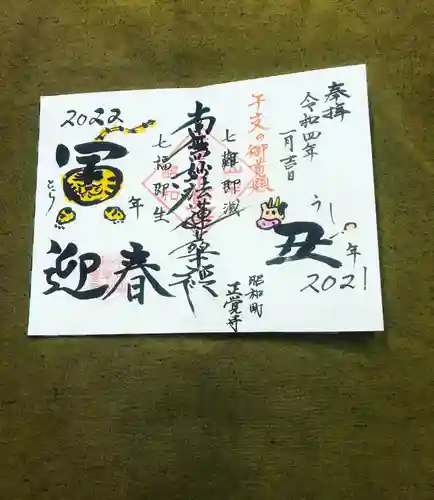 奉拝
令和四年
一月吉日
うし年
丑
2021
干支の御首題
七難即滅
南無妙法蓮華経
七福即生
昭和町
正覚寺
2022
寅
とら年
迎春